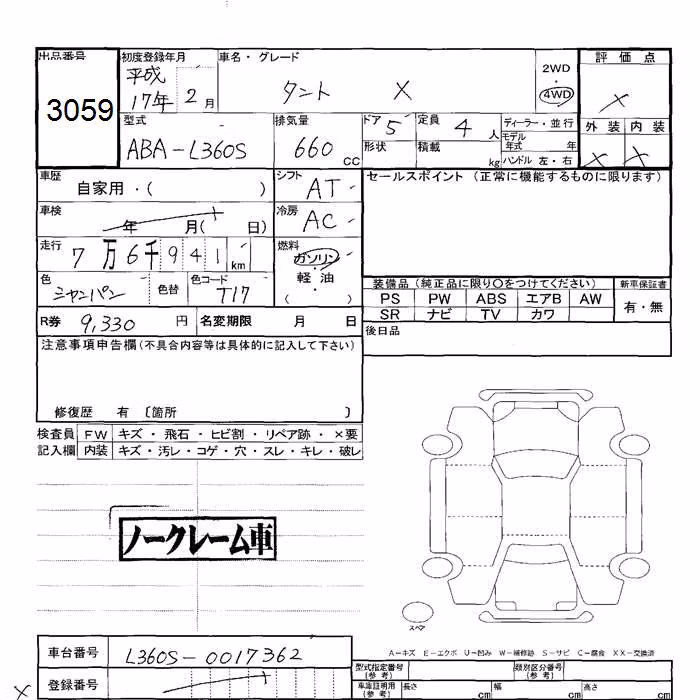 出品番号 初度登録年月 車名・グレード 2WD 評価点
3059 平成 17年 2月 タント X 4WD X
外装 内装
X X
型式 排気量 ドア 5 定員 4人 ディーラー・並行
ABA-L360S 660cc 形状 積載 kg モデル年式 年
ハンドル 左・右
車歴 シフト セールスポイント (正常に機能するものに限ります)
自家用・( ) AT
車検 年 月( 日) 冷房 AC
走行 7万6千941km 燃料 ガソリン
軽油
( )
色 シャンパン 色替 色コード T17
装備品(純正品に限り〇をつけてください) 新車保証書
PS PW ABS エアB AW 有・無
SR ナビ TV カワ
R券 9,330円 名変期限 月 日
後日品
注意事項申告欄(不具合内容等は具体的に記入して下さい)
修復歴 有 〔箇所 〕
検査員 FW キズ・飛石・ヒビ割・リペア跡・×要
記入欄 内装 キズ・汚レ・コゲ・穴・スレ・キレ・破レ
ノークレーム車
スペア
A-キズ E-エクボ U-凹み W-補修跡 S-サビ C-腐食 XX-交換済
車台番号 L360S-0017362
型式指定番号(参考) 類別区分番号(参考)
登録番号
車庫証明用(参考) 長さ cm 幅 cm 高さ cm
X